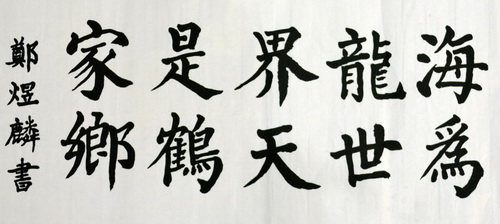 海為
龍世
界天
是鶴
家鄉
鄭煜麟書